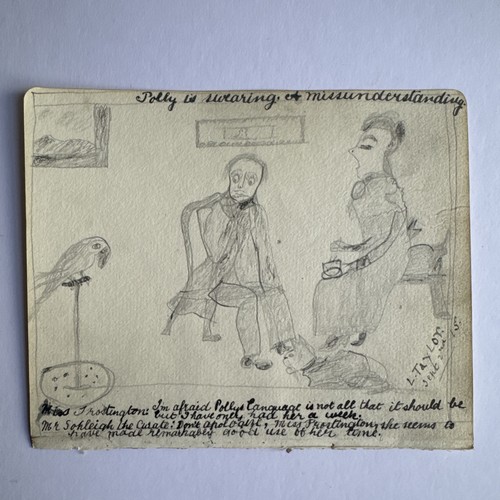 Polly is swearing. A missunderstanding.
L. TAYLOR.
Sept 2nd 15.
Miss Frostington: I'm afraid Pollys Language is not all that it should be
but I have only had her a week.
Mr Sohleigh the Curate: Don't apologise, Miss Frostington, she seems to
have made remarkably good use of her time.